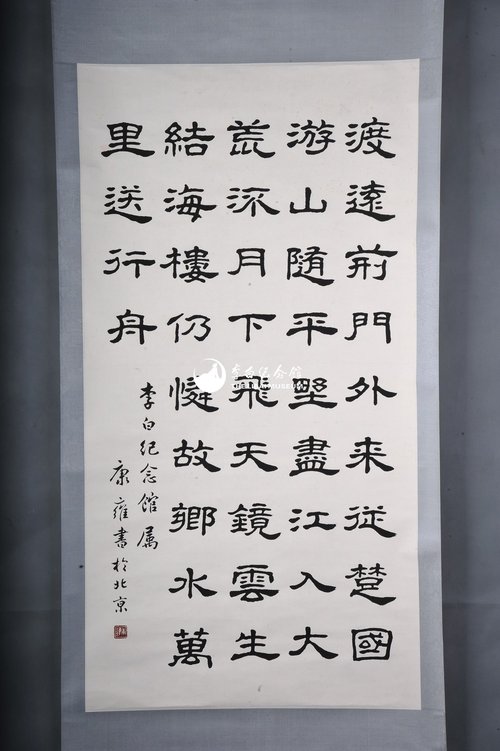 渡遠荊門外来從楚國
游山隨平埜盡江入大
荒流月下飛天鏡雲生
結海樓仍憐故鄉水萬
里送行舟
李白纪念館属
康雍書於北京
李白纪念馆